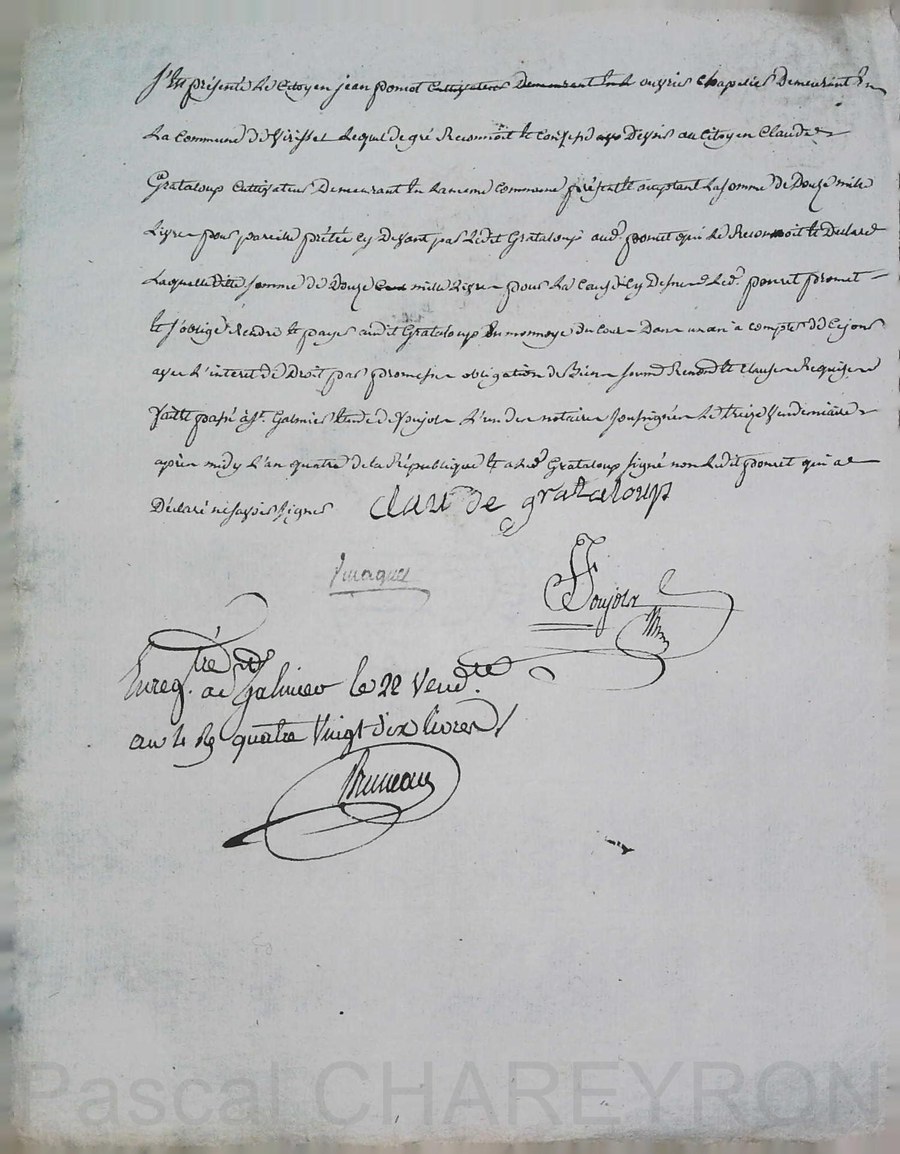 S'est présenté le Citoyen jean pomet Cultivateur Demeurant En ouvrier chapelier Demeurant En
La Commune de lequel de gré Reconnoit et confesse avoir Devoir au Citoyen Claude
Grataloup Cultivateur Demeurant En la meme Commune présent et acceptant La somme de Douze mille
Livres pour pareille prétée cy Devant par Ledit Grataloup aud. pomet qui le Reconnoit et Declare
Laquelle ditte somme de Douze mille Livres pour La Cause cy Desus Led. pomet promet
et s'oblige Rendre et payer audit Grataloup En monnoye du Cour Dans un an a compter de Ce jour
avec L'interet de Droit par promesse obligation de Biens soumis Renon et clauses Requises
faitte passé à St. Galmier Etude de Poujols L'un des notaires soussignés le treize vendemiaire
après midy L'an quatre de la République et a led. Grataloup signé non Ledit pomet qui a
Déclaré ne savoir signer clau de grataloup
Poujols
Nre
Enreg.tré à St Galmier le 22 Vend.re
an 4 R quatre Vingt dix livres
Bruneau
Pascal CHAREYRON